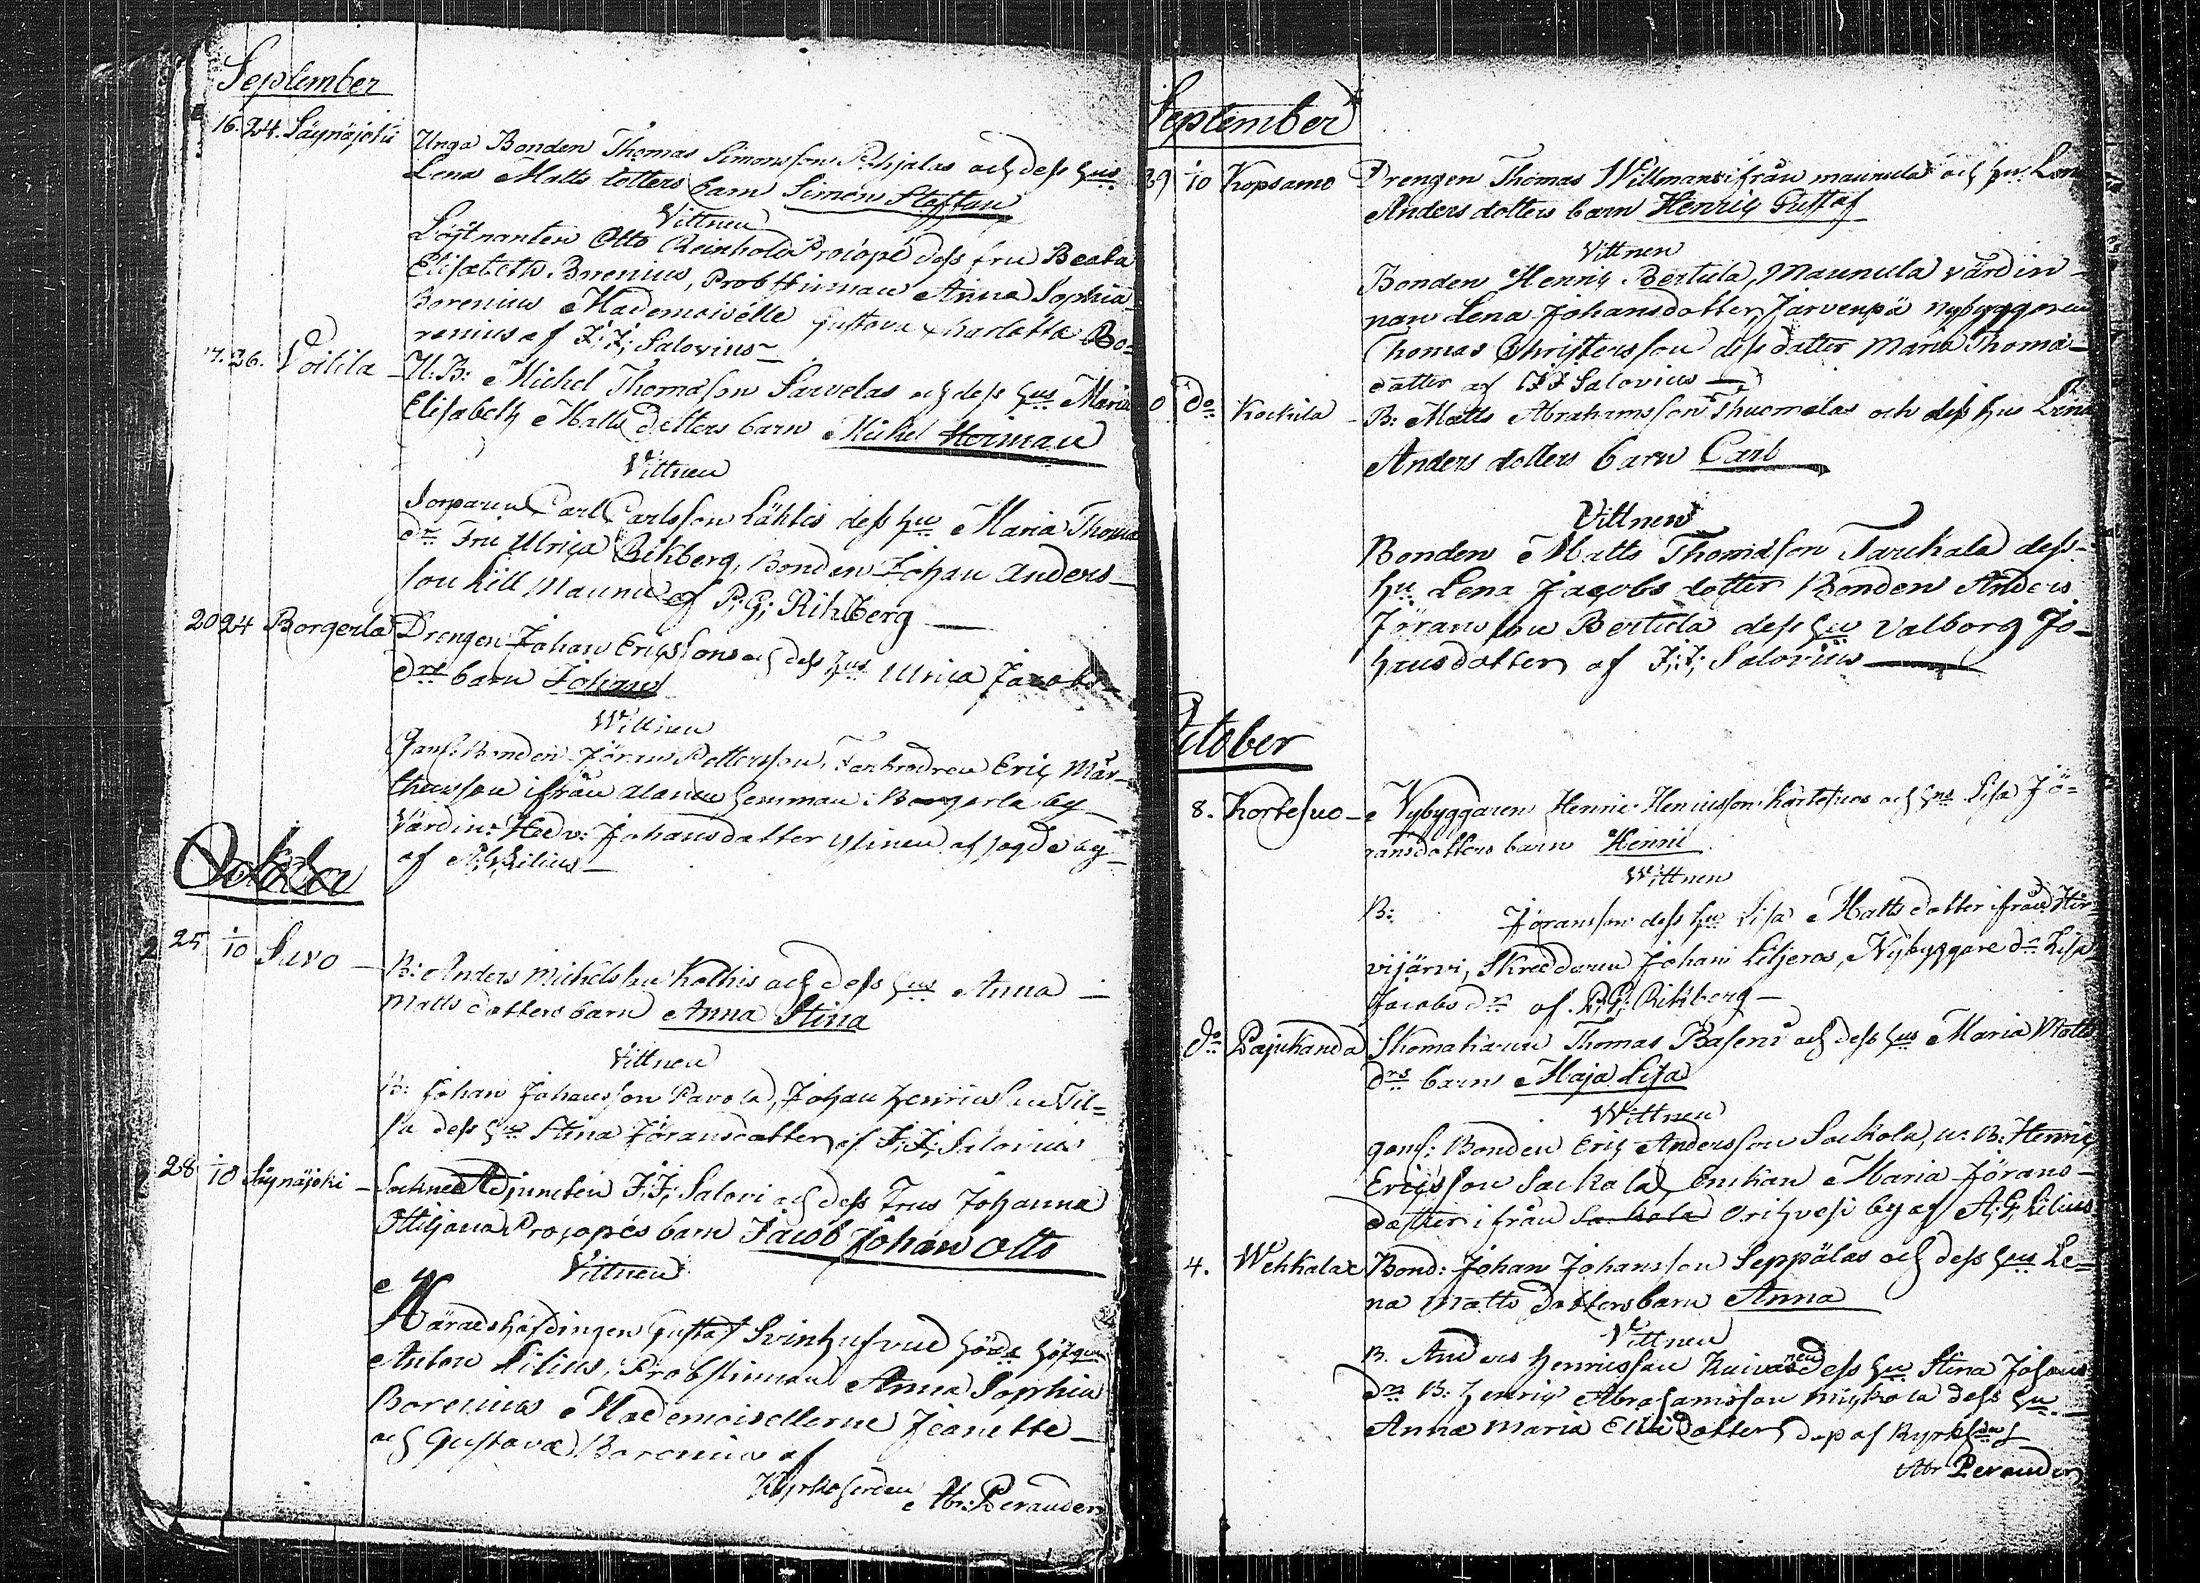 September
16. 24. Säynäjoki Unga Bonden Thomas Simonsson Pohjalas och dess hus
Lena Matts dotters barn Simon Staffan
Vittnen
Löjtnanten Otto Reinhold Procopé dess fru Beata
Elisabeth Borenius, Probstinnan Anna Sophia
Borenius Mademoiselle Gustava Charlotta Bo=
renius af J: J: Salovius
17. 26. Voitila U: B: Michel Thomasson Sarvelas och dess hus Maria
Elisabeth Matts dotters barn Michel Herman
Vittnen
Torparen Carl Carlsson Lähtis dess hu Maria Thoma
dr Fru Ulrica Rihberg, Bonden Johan Anders
son Kill Maunu af P: G: Rihberg
20 24 Borgerla Drengen Johan Ericssons och dess hus Ulrica Jacobs
drs barn Johan
Wittnen
Bonden Jöran Pettersson, Farbrodren Eric Mår-
thensson ifrån hemman i Borgerla by
Värdin: Hedv: Johansdotter af by
af A: G: Lilius
October
25 1/10 Suvo B: Anders Michelsson Kolhis och dess hus Anna
Matts dotters barn Anna Stina
Vittnen
B: Johan Johansson Pavola, Johan Henricsson Til=
la dess hus Stina Jöransdotter af J: J: Salovius
28 1/10 Säynäjoki Sockne Adjuncten J: J: Salovi och dess Frus Johanna
Ottiljana Procopés barn Jacob Johan Otto
Vittnen
Häradshöfdingen Gustaf Svinhufvud
Anton Lilius, Probstinnan Anna Sophia
Borenius Mademoisellerne Jeanette
och Gustava Borenius af
Kyrkoherden Abr: Perander
September
29 1/10 Kopsamo Drengen Thomas Willmans ifrån maunula och hus Lena
Anders dotters barn Henric Gustaf
Vittnen
Bonden Henric Bertula, Maunula värdin-
nan Lena Johansdotter, Jarvenpä nybyggaren
Thomas Christersson dess dotter Maria Thoma-
dotter af J J Salovius
0 do Kockila B: Matts Abrahamsson Thuomalas och dess hus Lena
Anders dotters barn Carl
Vittnen
Bonden Matts Thomasson Tarkala dess
hu Lena Jacobs dotter Bonden Anders
Jöransson Bertula dess hu Valborg Jo-
hansdotter af J: J: Salovius
October
8. Kortesuo Nybyggaren Henric Henricsson Kortesuos och hus Lisa Jö=
ransdotters barn Henric
Wittnen
B: Jöransson dess hu Lisa Matts dotter ifrån Hir-
vijärvi, Skreddaren Johan Liljeros, Nybyggare dr Lisa
Jacobs dr af P: G: Rihberg
do Pajukanda Skomakaren Thomas Basens och dess hus Maria Matts
drs barn Maja Lisa
Wittnen
Bonden Eric Andersson Sackola, u: B: Henric
Ericsson Sackala, Enckan Maria Jörans-
dotter ifrån Sackola Orihvesi by af A: G: Lilius
4. Wehkalax Bond: Johan Johansson Seppälas och dess hus Le=
na Matts dotters barn Anna
Vittnen
B. Anders Henricsson Kuivanen dess hu Stina Johans
dr B: Henric Abrahamsson Mickola dess hu
Anna Maria dotter, döp af Kyrkohden
Abr Perander